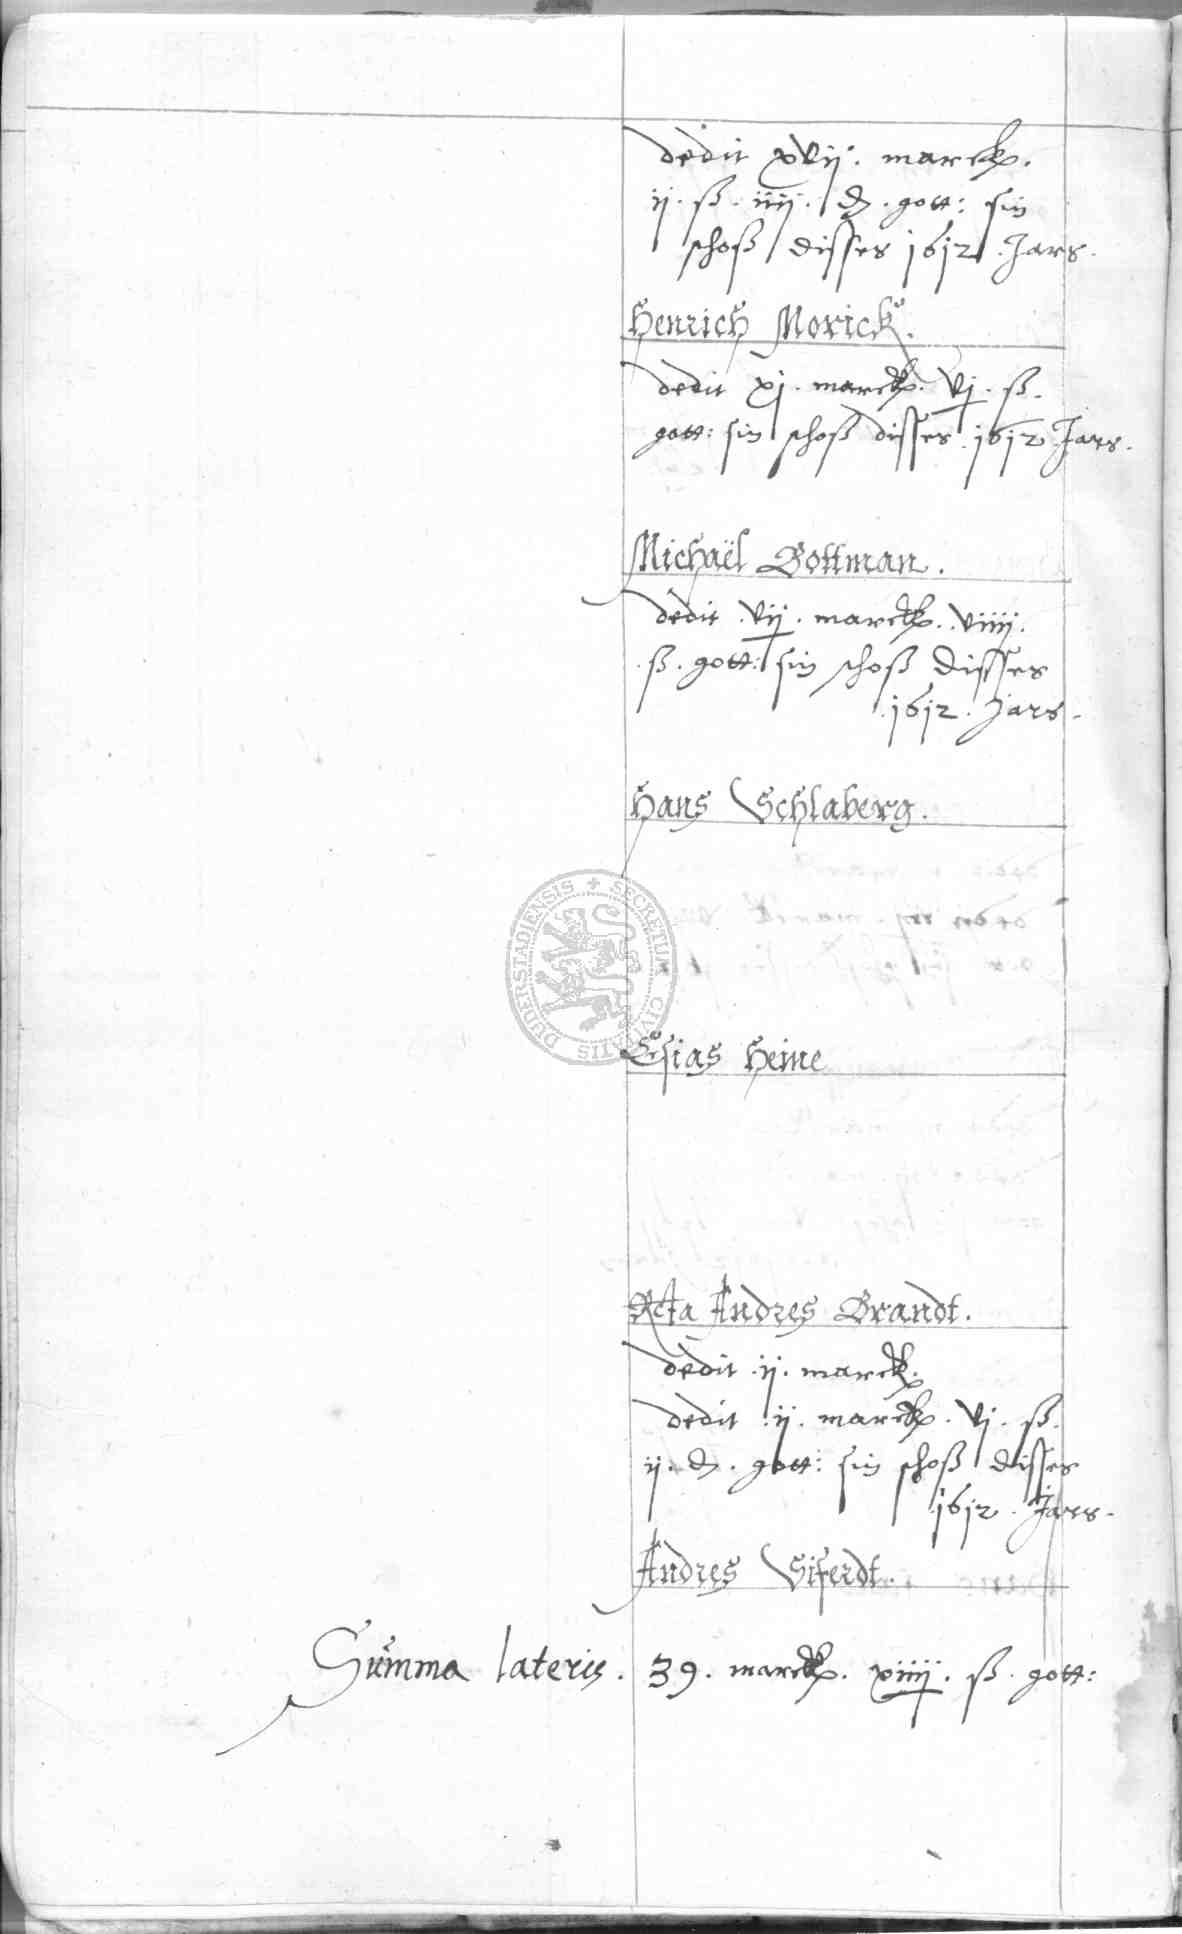 dedit xvij. marck.
ij. ß. iiij. d. gott: sin
schoß disses 1612 Jars.
Henrich Morick.
dedit xj. marck. vj. ß.
gott: sin schoß disses 1612 Jars.
Michaël Bottman.
dedit vij. marck. viiij.
ß. gott: sin schoß disses
.1612. Jars.
Hans Schlaberg.
DUDERSTADIENSIS + SECRETUM CIVITATIS
Esias Heine
Andres Brandt.
dedit .ij. marck.
dedit .ij. marck. vj. ß.
ij. d. gott: sin schoß disses
1612. Jars.
Andres Siferdt.
Summa lateris. 39. marck. xiiij. ß. gott: